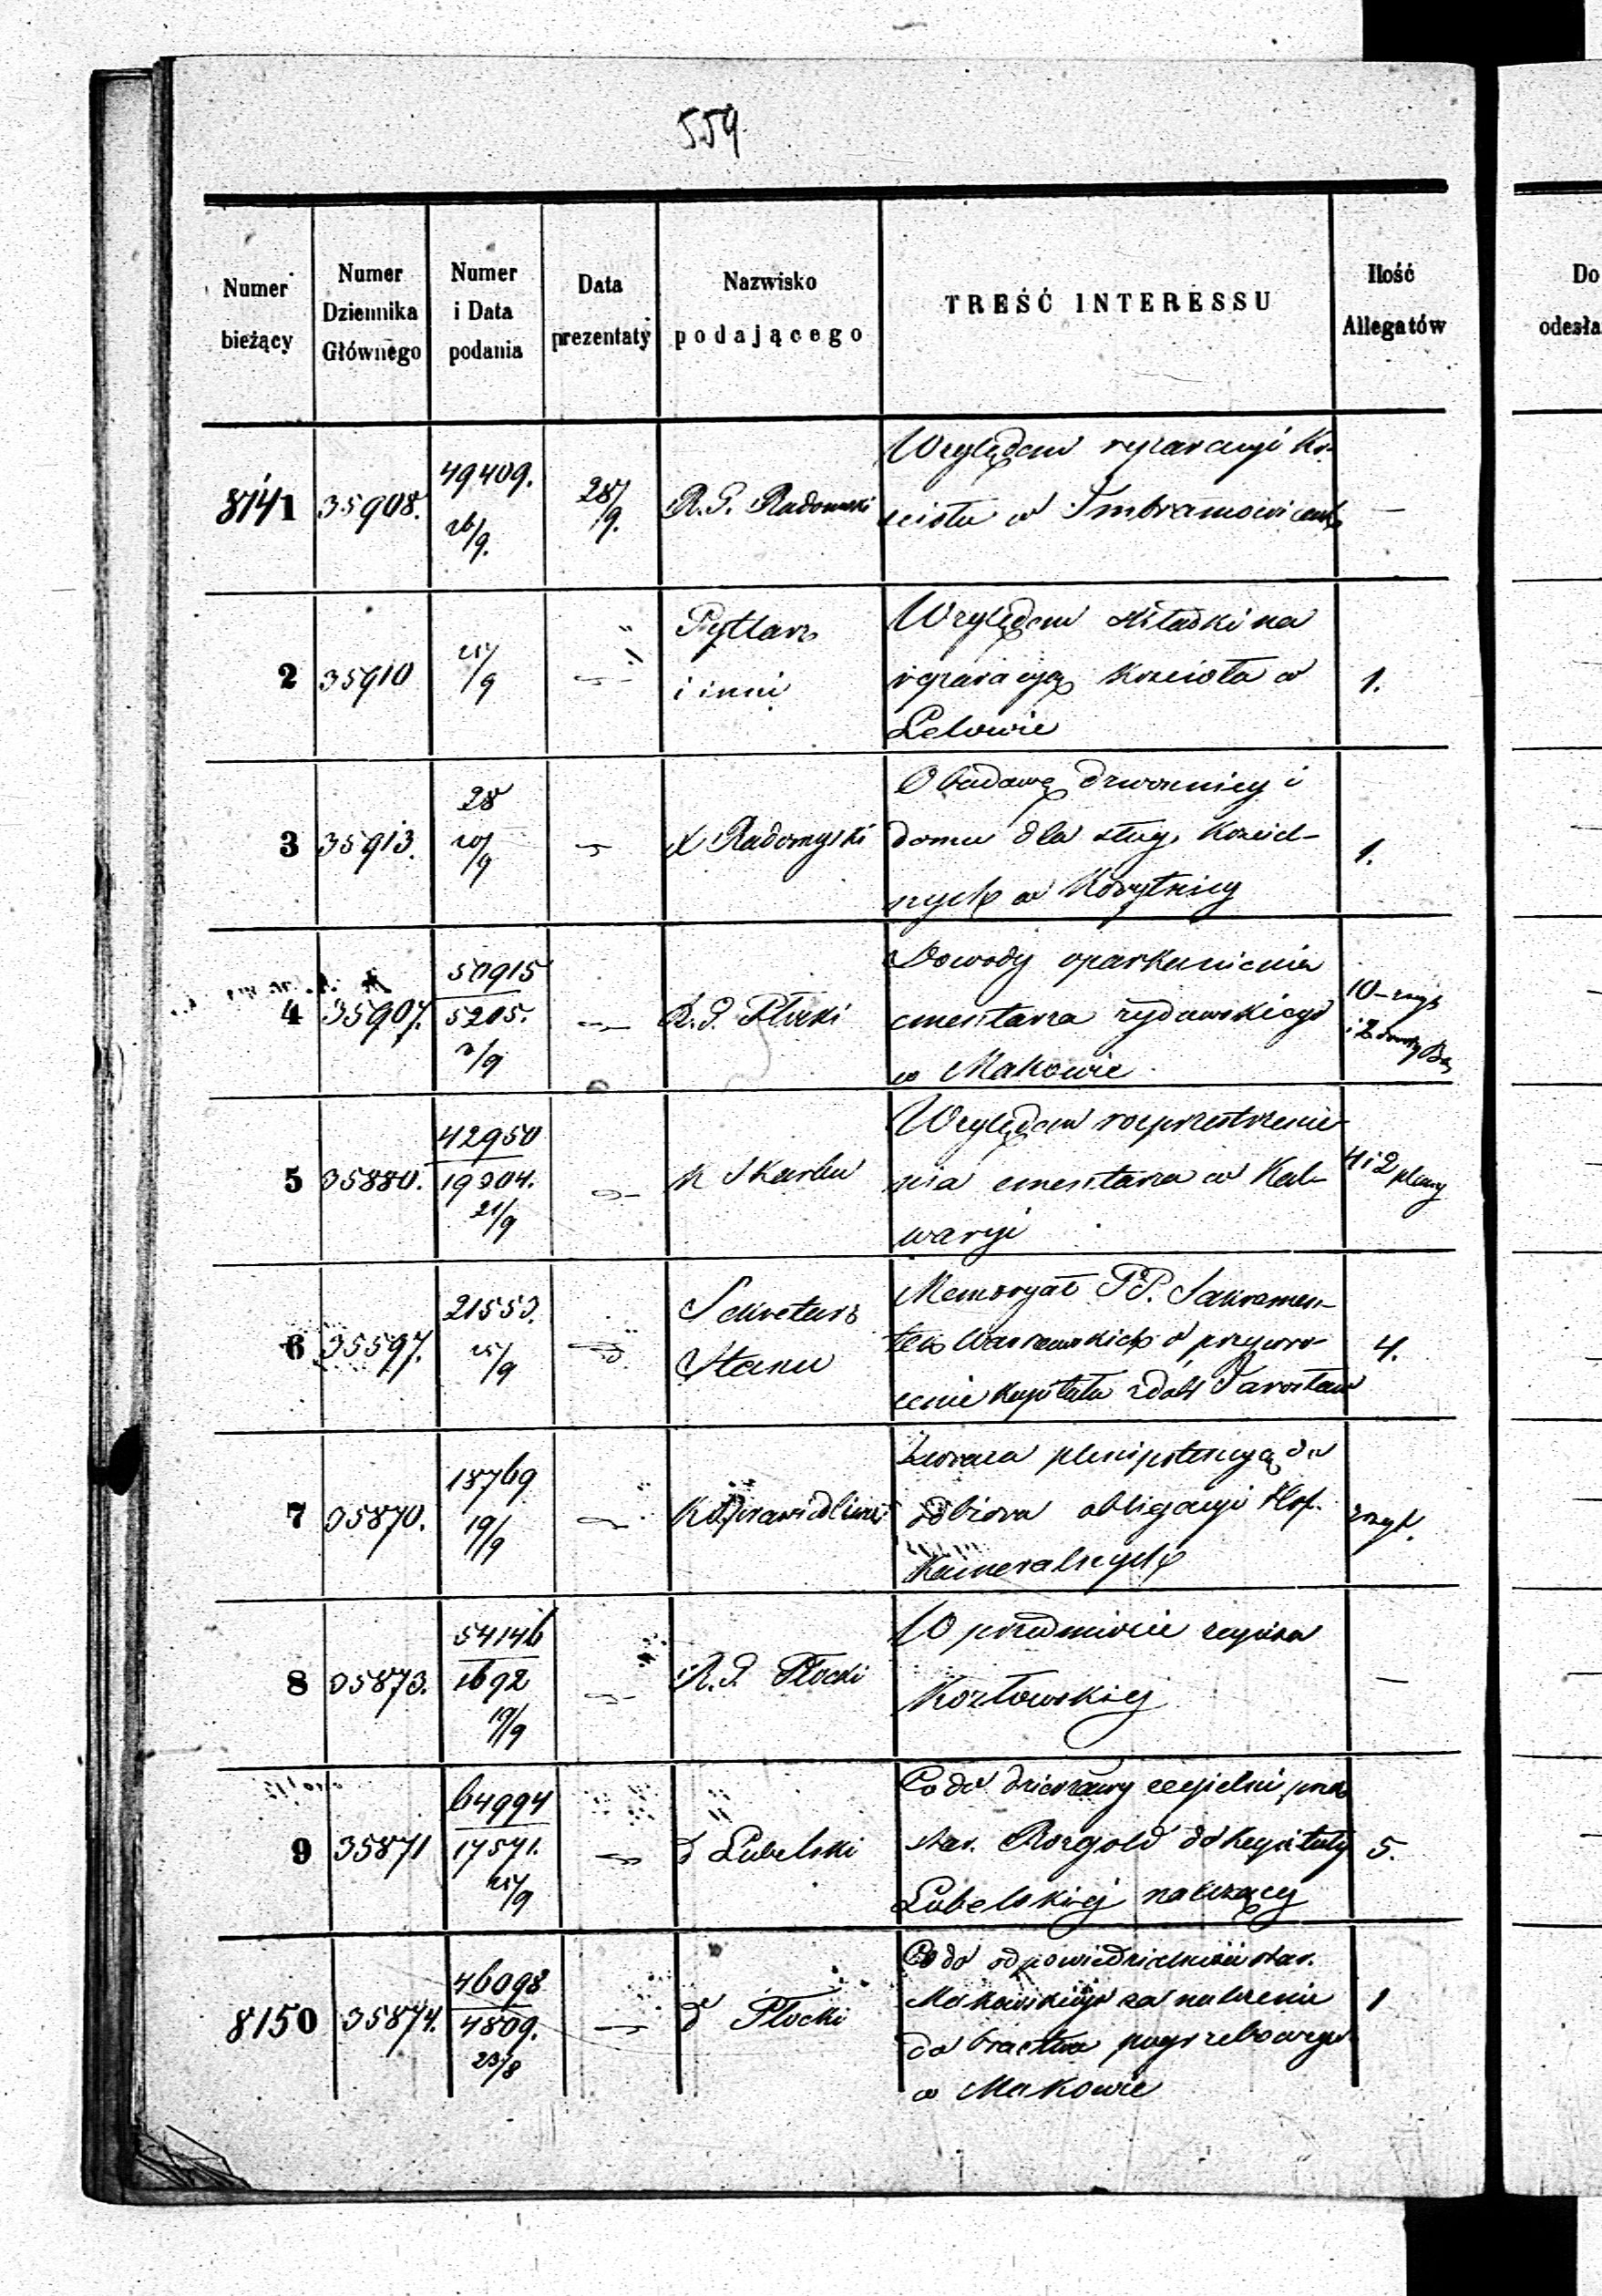 559
Numer bieżący
Numer Dziennika Głównego
Numer i Data podania
Data prezentaty
Nazwisko podającego
TREŚĆ INTERESSU
Ilość Allegatów
Do
odesła
8141 35908. 49409. 26/9. 28/9. R. G. Radomski
Względem reparacyi Ko-
ścioła w Imbramowicach —
2 35910 25/9 " Pytlarz
i inni
Względem składki na
reparacyą kościoła w
Lelowie
1.
3 35913. 28 20/9 X Radomyski
O budowę dzwonnicy i
domu dla sług kościel-
nych w Korytnicy
1.
4 35907. 50915
5205.
2/9
R. G. Płocki
Dowody oparkanienia
cmentarza żydowskiego
w Makowie
10-szyt
i 2
5 35880. 42950
19304.
21/9
K Skarbu
Względem rozprzestrzenie
nia cmentarza w Kal-
waryi
4 i 2 plany
6 35597. 21553.
25/9
Sekretarz
Stanu
Memoryał PP. Sakramen-
tek Warszawskich o przywró
cenie kapitału z dóbr Jarosław
4.
7 35870. 18769
19/9
K Sprawiedliwoś
Zwraca plenipotencyą do
odbioru obligacyi Hip.
Kameralnych
szyt.
8 35873. 54146
1692
19/9
R. G. Płocki
W przedmiocie zapisu
Kozłowskiej
—
9 35871 64994
17571.
25/9
d Lubelski
Co do dzierżawy cegielni przez
star. Rozgold do Kapituły
Lubelskiej należącej
5.
8150 35874. 46098
4809.
23/8
d Płocki
Co do odpowiedzialności star.
Makowskiego za należenie
do bractwa pogrzebowego
w Makowie
1